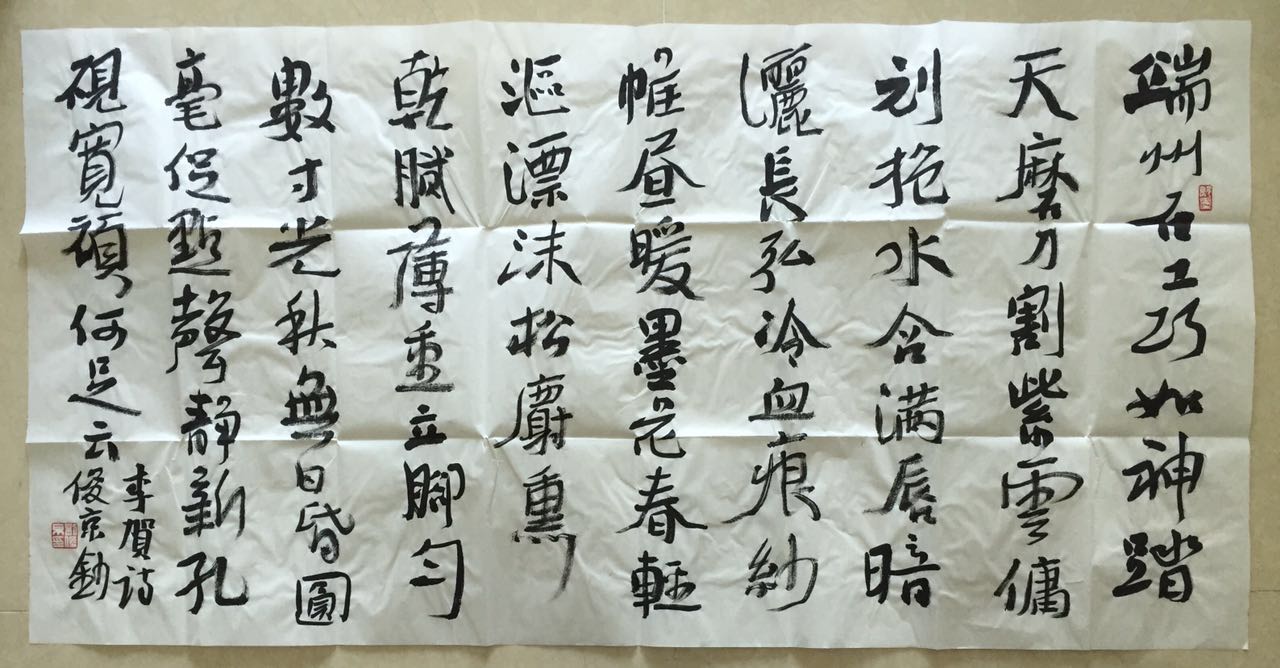 端州石工巧如神踏
天磨刀割紫雲傭
刓抱水含满唇暗
灑長弘冷血痕紗
帷昼暖墨花春輕
漚漂沫松麝熏
乾膩薄重立腳匀
數寸光秋無日昏圓
毫促點聲靜新孔
硯寬頑何足云
李賀诗
俊京